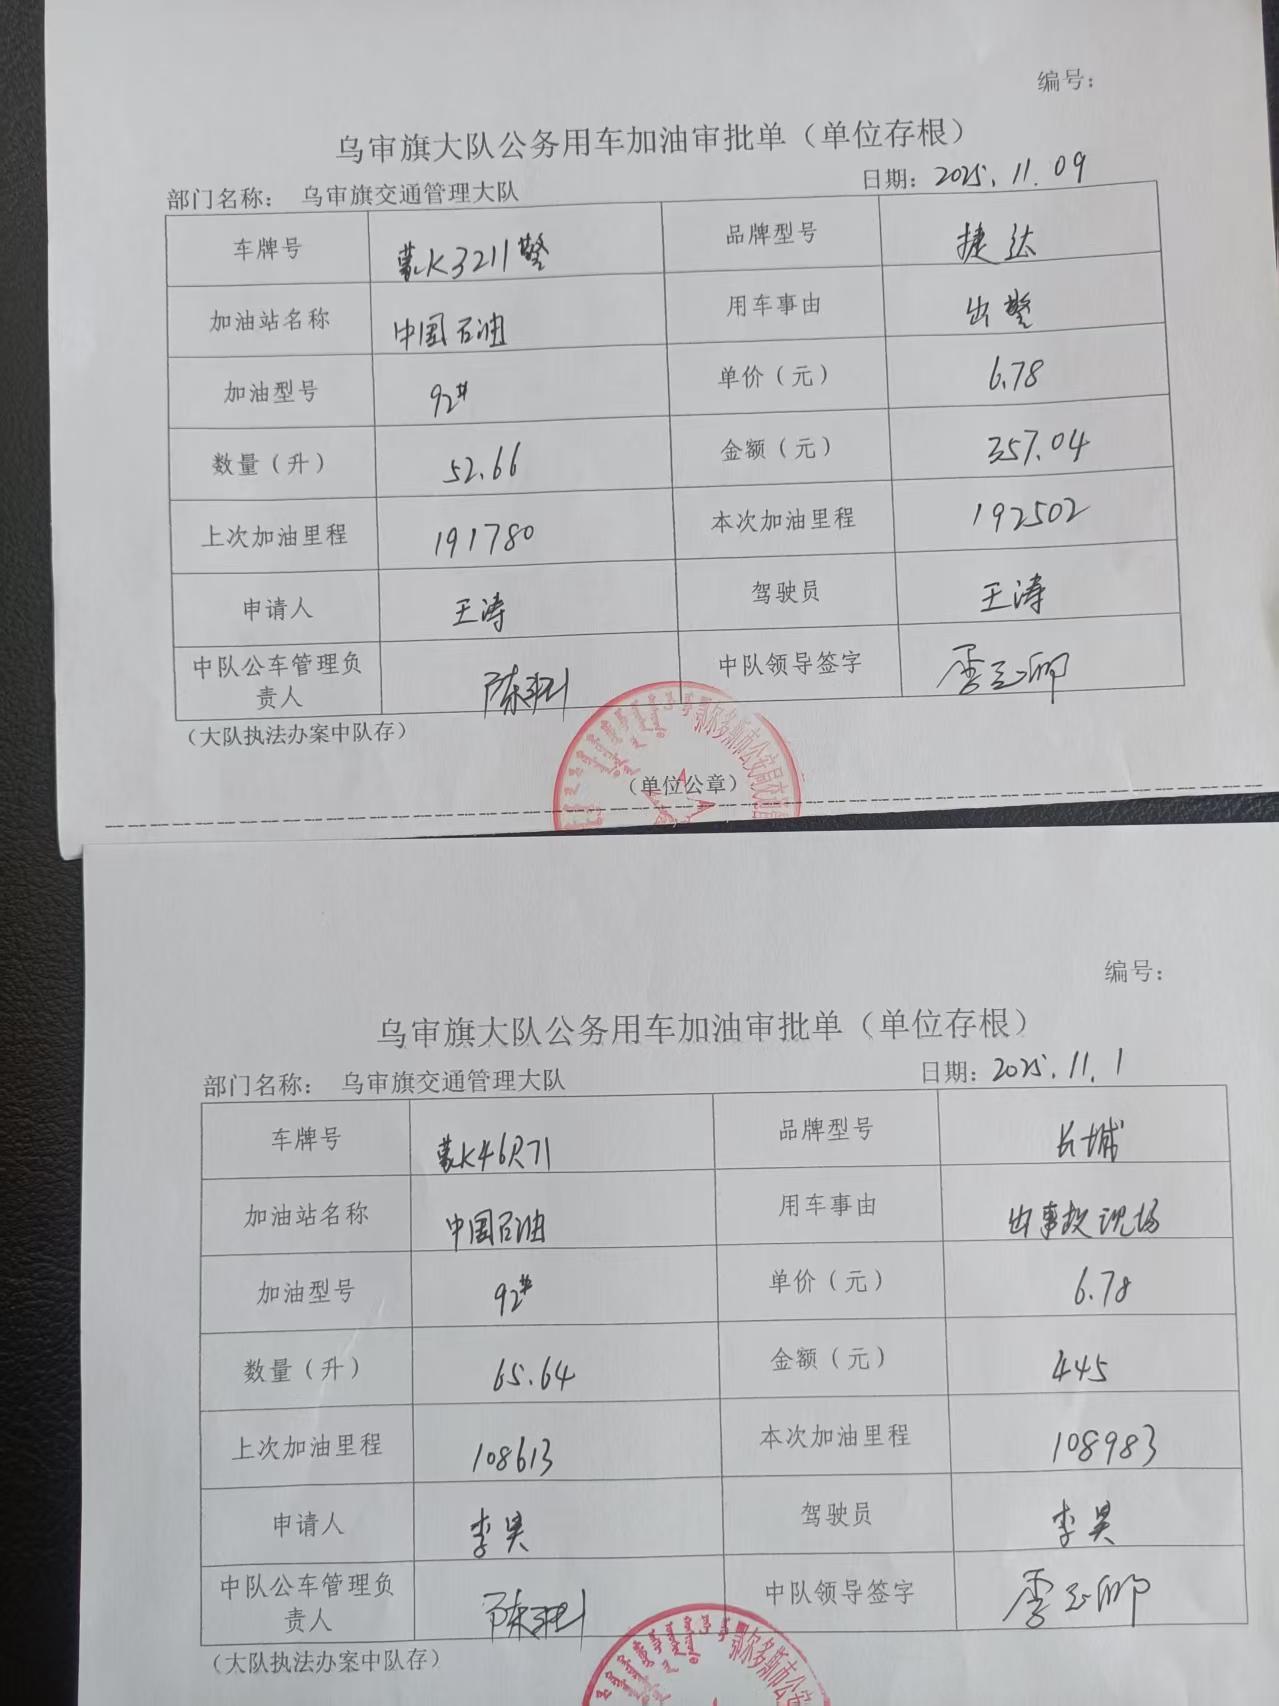 编号：
乌审旗大队公务用车加油审批单（单位存根）
部门名称： 乌审旗交通管理大队 日期：2025.11.09
车牌号 蒙K3211警 品牌型号 捷达
加油站名称 中国石油 用车事由 出警
加油型号 92# 单价（元） 6.78
数量（升） 52.66 金额（元） 357.04
上次加油里程 191780 本次加油里程 192502
申请人 王涛 驾驶员 王涛
中队公车管理负责人 中队领导签字
（大队执法办案中队存）
鄂尔多斯市公安局
（单位公章）
编号：
乌审旗大队公务用车加油审批单（单位存根）
部门名称： 乌审旗交通管理大队 日期：2025.11.1
车牌号 蒙K46R71 品牌型号 长城
加油站名称 中国石油 用车事由 出事故现场
加油型号 92# 单价（元） 6.78
数量（升） 65.64 金额（元） 445
上次加油里程 108613 本次加油里程 108983
申请人 李昊 驾驶员 李昊
中队公车管理负责人 中队领导签字
（大队执法办案中队存）
鄂尔多斯市公安